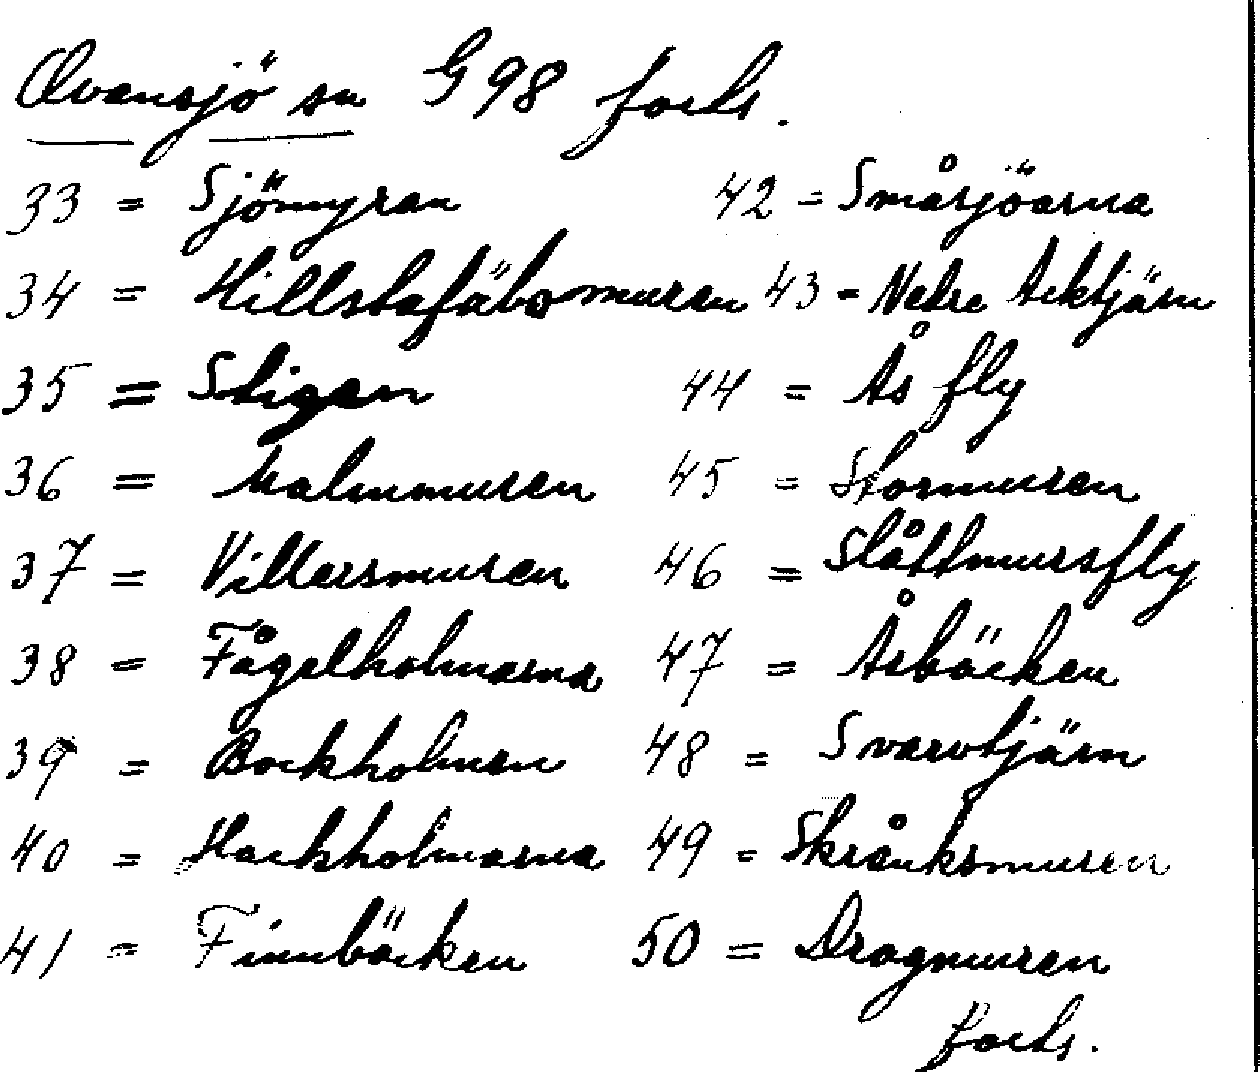 Ovansjö sn G 98 forts.
33 = Sjömyran
34 = Hillstafäbomuren
35 = Stigen
36 = Malmmuren
37 = Villersmuren
38 = Fågelholmarna
39 = Bockholmen
40 = Hackholmarna
41 = Finnbäcken
42 = Småsjöarna
43 = Nedre Acktjärn
44 = Ås fly
45 = Stormuren
46 = Slåttmursfly
47 = Åsbäcken
48 = Svarvtjärn
49 = Skråuksmuren
50 = Dragmuren
forts.